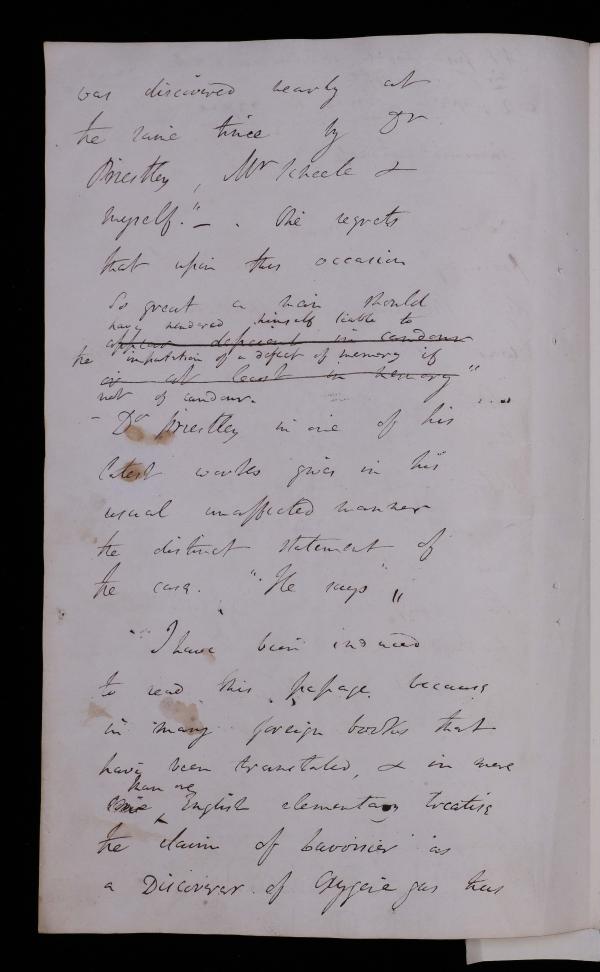 was discovered nearly at
the same time by Dr
Priestley, Mr Scheele &
myself." — . One regrets
that upon this occasion
So great a man should
have rendered himself liable to
appear deficient in candour
the imputation of a defect of memory if
or at least in memory"
not of candour.
– Dr Priestley in one of his
latest works gives in his
usual unaffected manner
the distinct statement of
the case. "He says" "
"I have been induced
to read this passage because
in many foreign books that
have been translated, & in more
than one
English elementary treatise
the claim of Lavoisier as
a Discoverer of Oxygene gas has